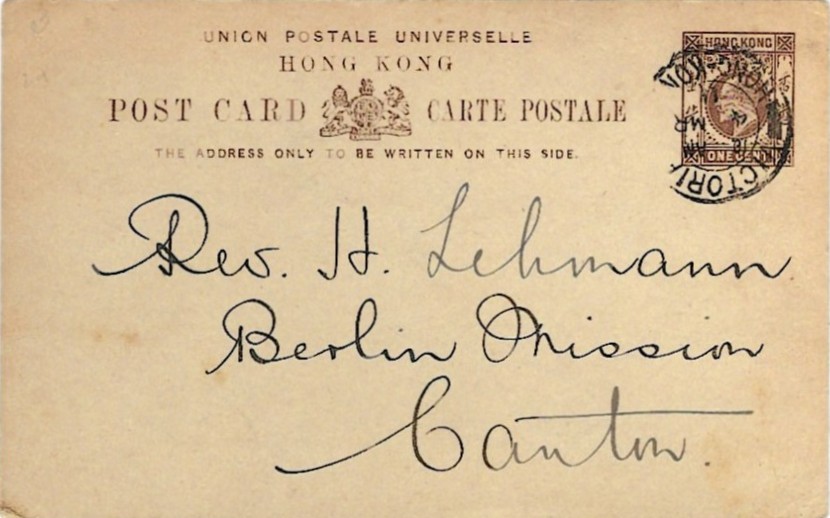 UNION POSTALE UNIVERSELLE
HONG KONG
POST CARD CARTE POSTALE
THE ADDRESS ONLY TO BE WRITTEN ON THIS SIDE.
HONG KONG
ONE CENT
VICTORIA
HONG-KON
MR
Rev. H. Lehmann
Berlin Mission
Canton.